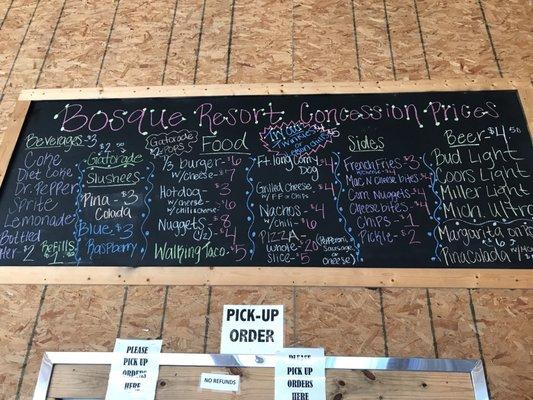 Bosque Resort Concession Prices
Beverages $3
Coke
Diet Coke
Dr. Pepper
Sprite
Lemonade
Bottled
$2
Refills
$1
$2
Gatorade
Slushees
Pina $3
Colada
Blue $3
Raspberry
Gatorade
POPS $2
Food
1/3 burger $6
w/cheese $7
Hotdog $3
w/cheese
w/chili & cheese
Nuggets $8
Walking Taco $5
Ft long Corn $4
Dog
Grilled Cheese $4
w/FF or chips
Nachos $4
w/chili $6
Pizza
whole $20
Slice $5
(Pepperoni,
Sausage
or cheese)
Sides
French Fries $3
w/cheese
Mac N cheese bites $4
Corn Nuggets $4
Cheese bites $4
Chips $1
Pickle $2
Beer $4
Bud Light
Coors Light
Miller Light
Mich. Ultra
Margarita on
$6
Pina Colada
PICK-UP
ORDER
PLEASE
PICK UP
ORDERS
HERE
NO REFUNDS
PLEASE
PICK UP
ORDERS
HERE